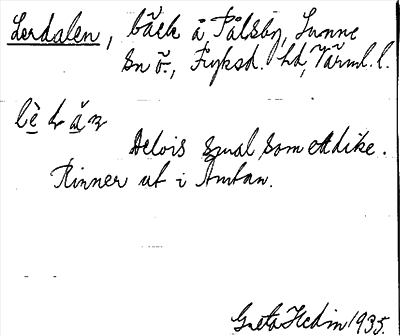 Lerdalen, bäck å Pålsby, Sunne
sn ö., Fryksd. hd, Värml. l.
Delvis smal som ett dike.
Rinner ut i Ämtan.
Greta Hedin 1935.